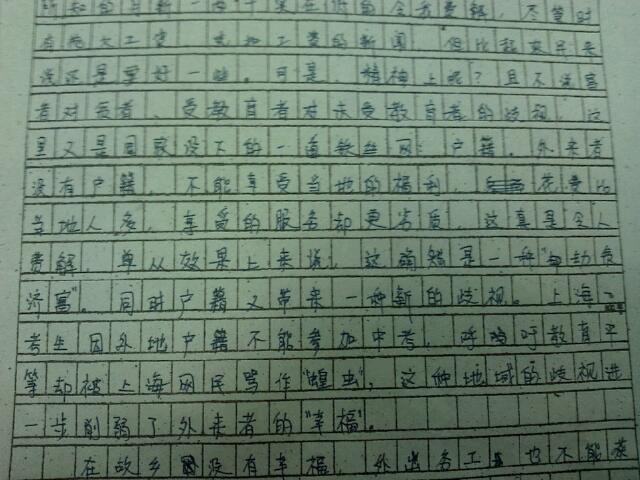 有拖欠工资 的新闻 但比起来
说还是要好一些。可是，精神上呢？且不说富
者对贫者、受教育者对未受教育者的歧视，这
里又是国家设下的一道铁丝网：户籍。外来者
没有户籍，不能享受当地的福利，花费比
当地人多，享受的服务却更劣质，这真是令人
费解，单从效果上来说，这确然是一种"劫贫
济富"。同时户籍又带来一种新的歧视。上海一
考生因外地户籍不能参加中考，呼吁教育平
等却被上海网民骂作"蝗虫"，这种地域的歧视进
一步削弱了外来者的"幸福"。
在故乡没有幸福，外出务工也不能获